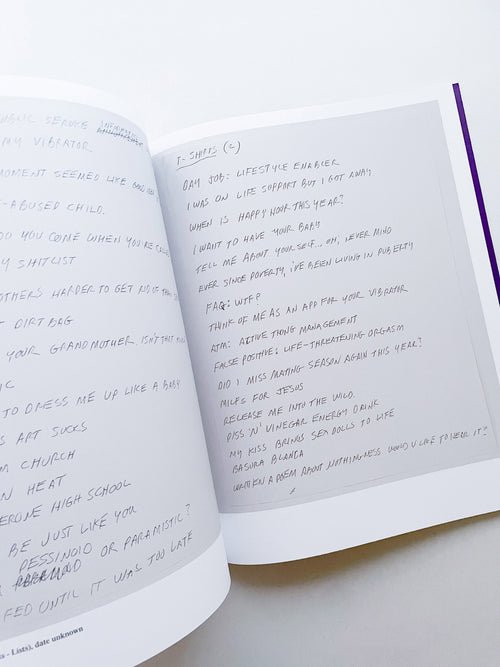 PUBLIC SERVICE
MY VIBRATOR
MOMENT SEEMED LIKE GOOD
-ABUSED CHILD.
DO YOU COME WHEN YOU'RE CALLED
Y SHITLIST
OTHERS HARDER TO GET RID OF THAN
T DIRTBAG
YOUR GRANDMOTHER. ISN'T THAT
IC
TO DRESS ME UP LIKE A BABY
S ART SUCKS
M CHURCH
N HEAT
ERONE HIGH SCHOOL
BE JUST LIKE YOU
PESSINOID
OR PARAMISTIC?
FED UNTIL IT WAS TOO LATE
s - Lists), date unknown
T-SHIRTS (2)
DAY JOB: LIFESTYLE ENABLER
I WAS ON LIFE SUPPORT BUT I GOT AWAY
WHEN IS HAPPY HOUR THIS YEAR?
I WANT TO HAVE YOUR BABY
TELL ME ABOUT YOURSELF... OH, NEVER MIND
EVER SINCE POVERTY, I'VE BEEN LIVING IN PUBERTY
FAQ: WTF?
THINK OF ME AS AN APP FOR YOUR VIBRATOR
ATM: ACTIVE THONG MANAGEMENT
FALSE POSITIVE: LIFE-THREATENING ORGASM
DID I MISS MATING SEASON AGAIN THIS YEAR?
MILFS FOR JESUS
RELEASE ME INTO THE WILD.
PISS 'N' VINEGAR ENERGY DRINK
MY KISS BRINGS SEX DOLLS TO LIFE
BASURA BLANCA
WRITTEN A POEM ABOUT NOTHINGNESS WOULD U LIKE TO HEAR IT?